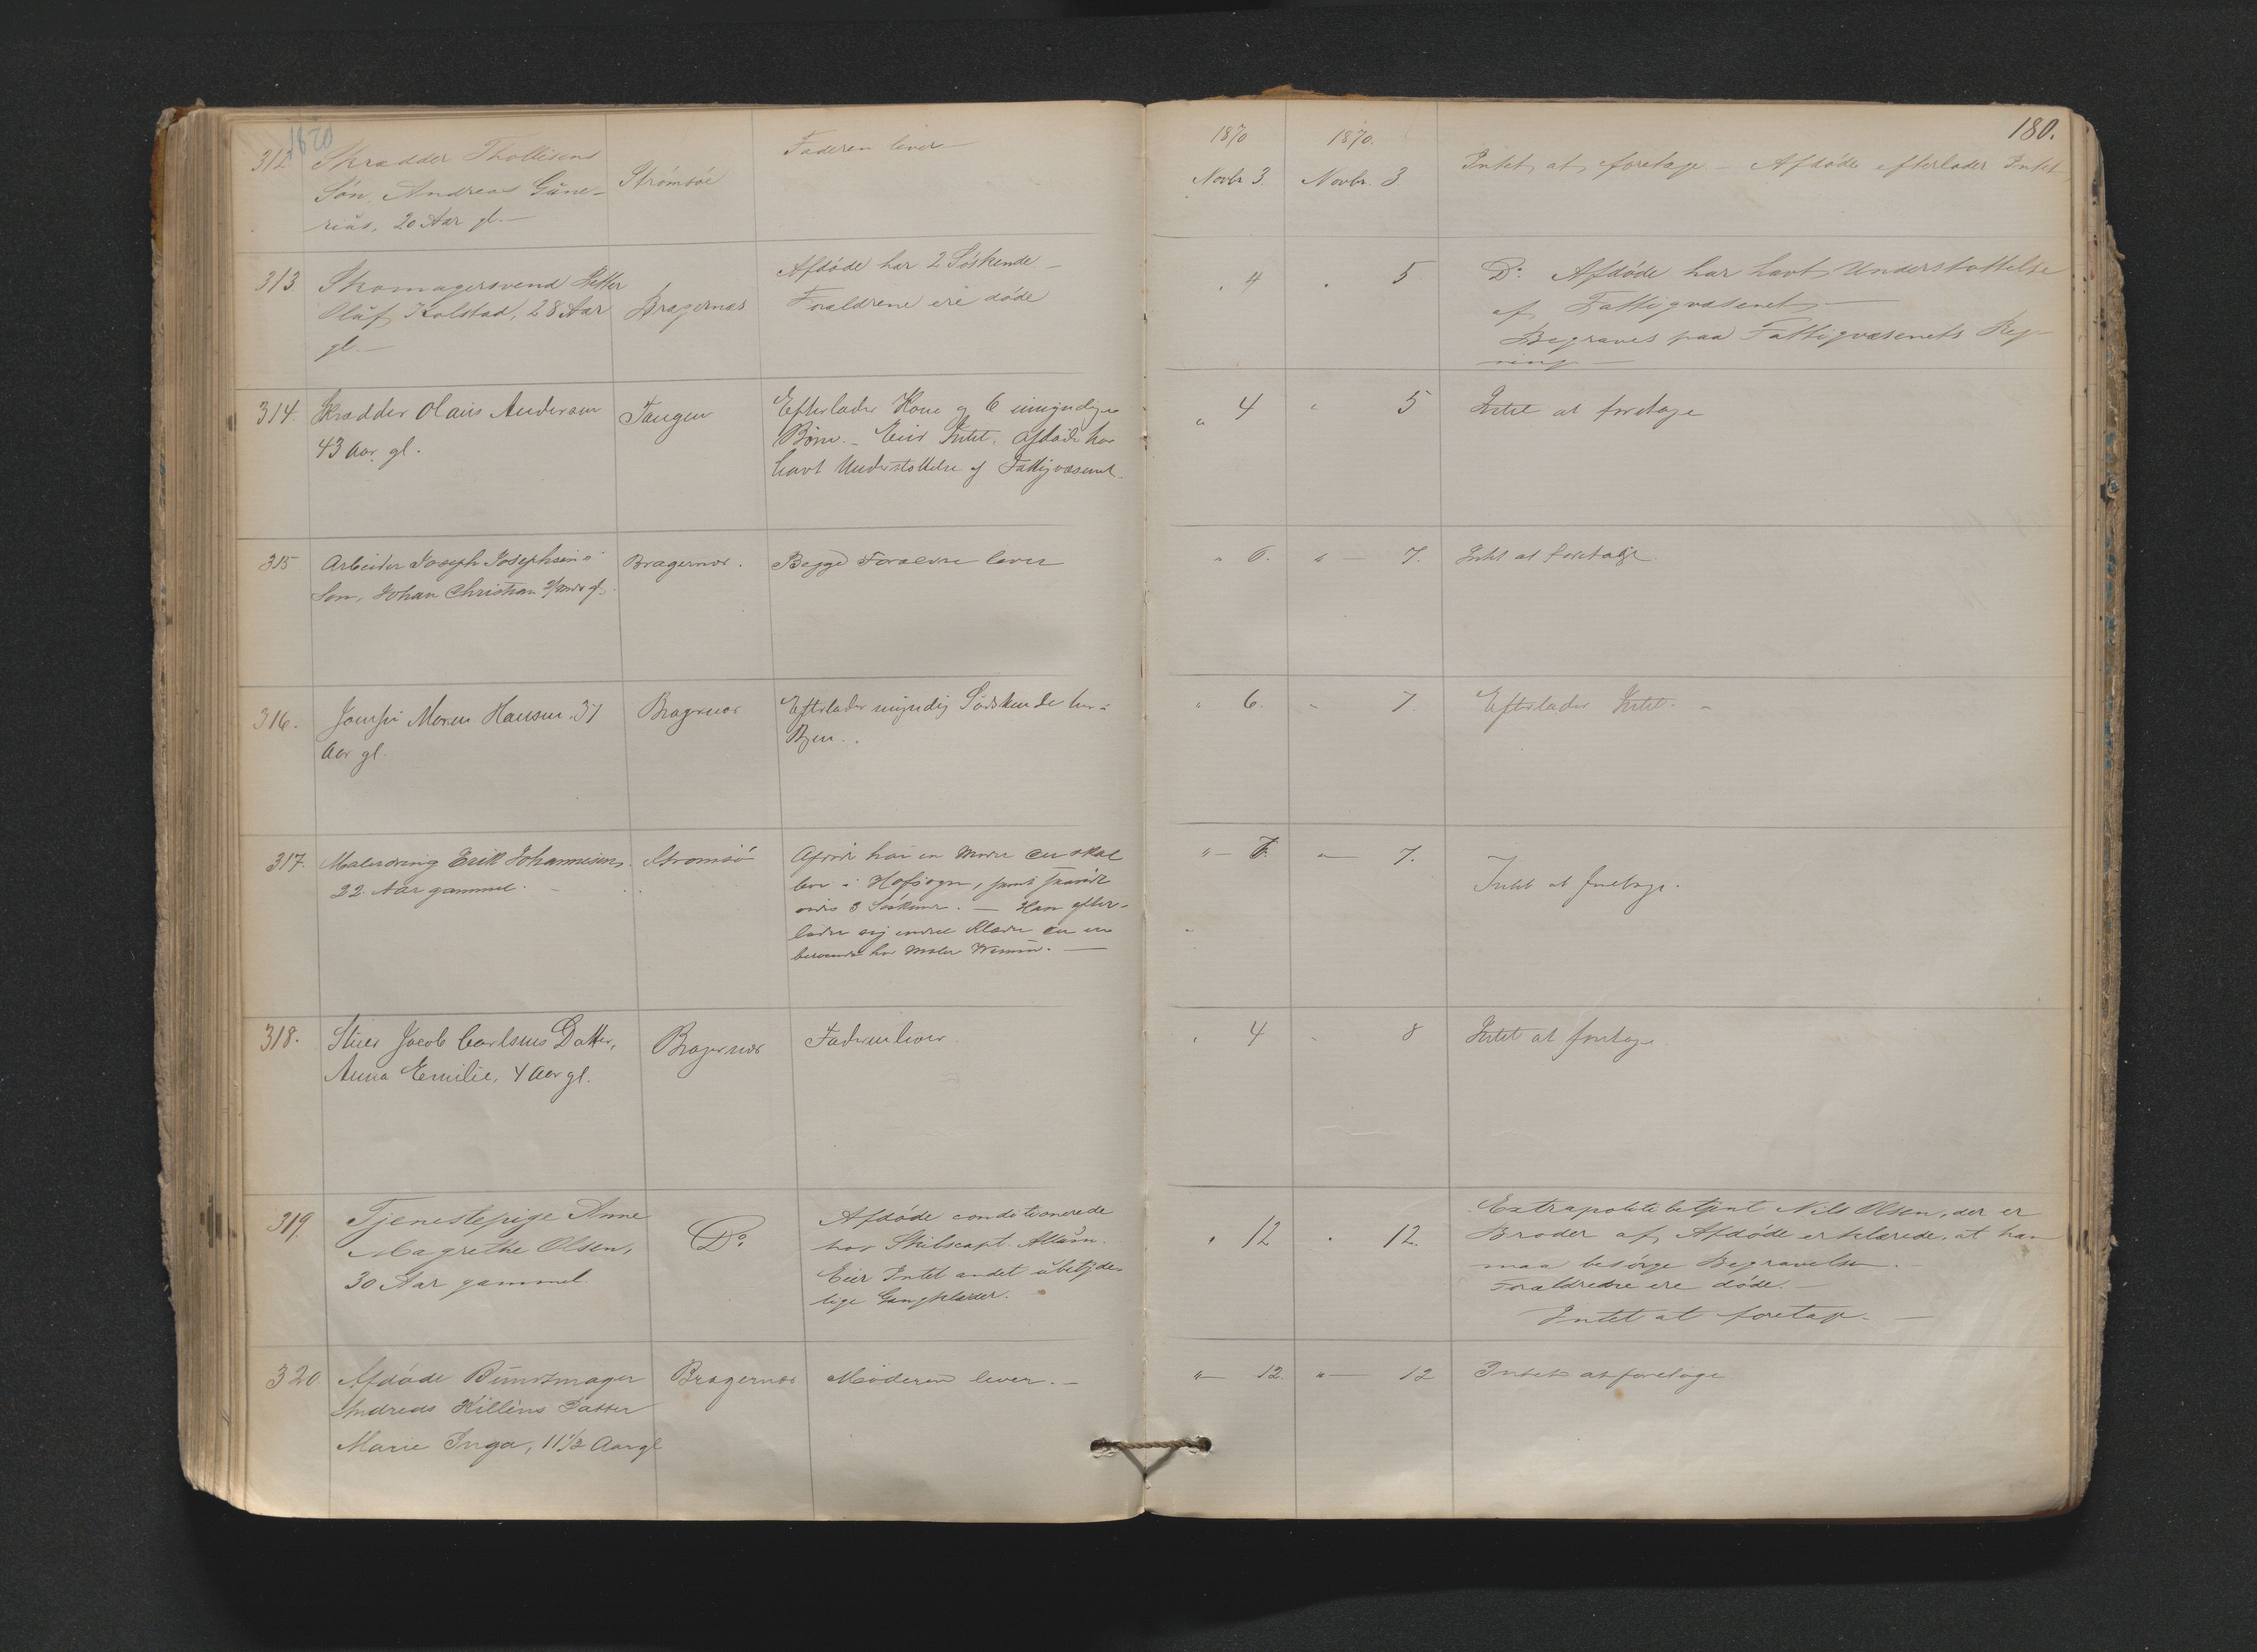 1870
312 Skrædder Thollisens
Søn, Andreas Güne-
riüs, 20 Aar gl.-
Strömsöe
Faderen lever
313 Skomagersvend Petter
Olüf Kolstad, 28 Aar
gl.-
Bragernæs
Afdöde har 2 Söskende -
Forældrene ere döde
314. Skrædder Olaus Andersen
43 Aar gl.
Tangen
Efterlader Kone og 6 umyndige
Børn. - Eier Intet. Afdøde har
havt Understøttelse af Fattigvæsenet.
315 Arbeider Joseph Josephsens
Søn, Johan Christian gl.
Bragernæs.
Begge Forældre lever
316. Maren Hansen. 37
Aar gl.
Bragernæs
Efterlader myndig Sødskende her i
Byen.
317. Erik Johannesen
22 Aar gammel.
Strömsö
Afdøde har en Moder der skal
leve i Hofsogn, samt
3 Söskende. - Han efter-
lader sig endel Klæder der ere
beroende hos Maler
318. Jacob Carlsens Datter,
Anna Emilie, 4 Aar gl.
Bragernæs
Faderen lever.
319. Tjenestepige Anne
Magrethe Olsen,
30 Aar gammel.
Do
Afdöde conditionerede
hos Skibscapt.
Eier Intet andet übetyde-
lige Gangklæder.
320 Afdöde Büntmager
Andreas Killéns Datter
Marie Inga, 11½ Aar gl
Bragernæs
Moderen lever. -
180.
1870 1870.
Novbr 3. Novbr. 3 Intet at foretage - Afdöde efterlader Intet
" 4 " 5 Do Afdöde har havt Understøttelse
af Fattigvæsenet -
Begraves paa Fattigvæsenets Reg-
ning -
" 4 " 5 Intet at foretage
" 6. " - 7. Intet at foretage.
" 6. " 7. Efterlader Intet. -
" - 7. " - 7. Intet at foretage.
" 4 " 8 Intet at foretage.
" 12 " 12. Extrapolitibetjent Nils Olsen, der er
Broder af Afdöde erklærede, at han
maa besörge Begravelsen.
Forældrene ere döde. -
Intet at foretage. -
" - 12. " - 12 Intet at foretage